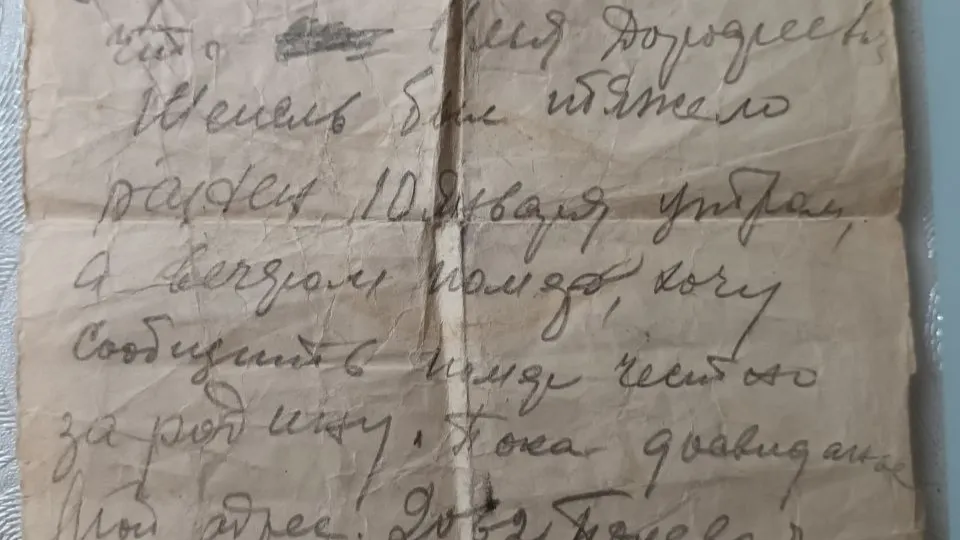 что Илья Дорофеевич
Шепель был тяжело
ранен 10 января утром,
а вечером помер, хочу
сообщить помер честно
за родину. Пока досвидание
Мой адрес.